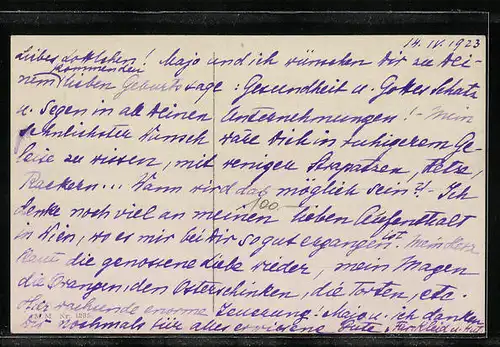 14. IV. 1923
Liebes Lottchen! Majo und ich wünschen Dir zu Dei-
nem kommenden lieben Geburtstage: Gesundheit u. Gottes Schutz
u. Segen in all Deinen Unternehmungen! - Mein
sehnlichster Wunsch wäre Dich in ruhigerem Ge-
leise zu wissen, mit weniger Strapatzen, Hetze,
Rackern... Wann wird das möglich sein?! - Ich
100
denke noch viel an meinen lieben Aufenthalt
in Wien, wo es mir bei Dir so gut ergangen ist. Mein Herz
die genossene Liebe wieder, mein Magen
die Orangen, den Osterschinken, die Torten, etc.
Hier wachsende enorme Teuerung! Majo u. ich danken
Dir nochmals für alles erwiesene Gute, für Kleid u. Hut